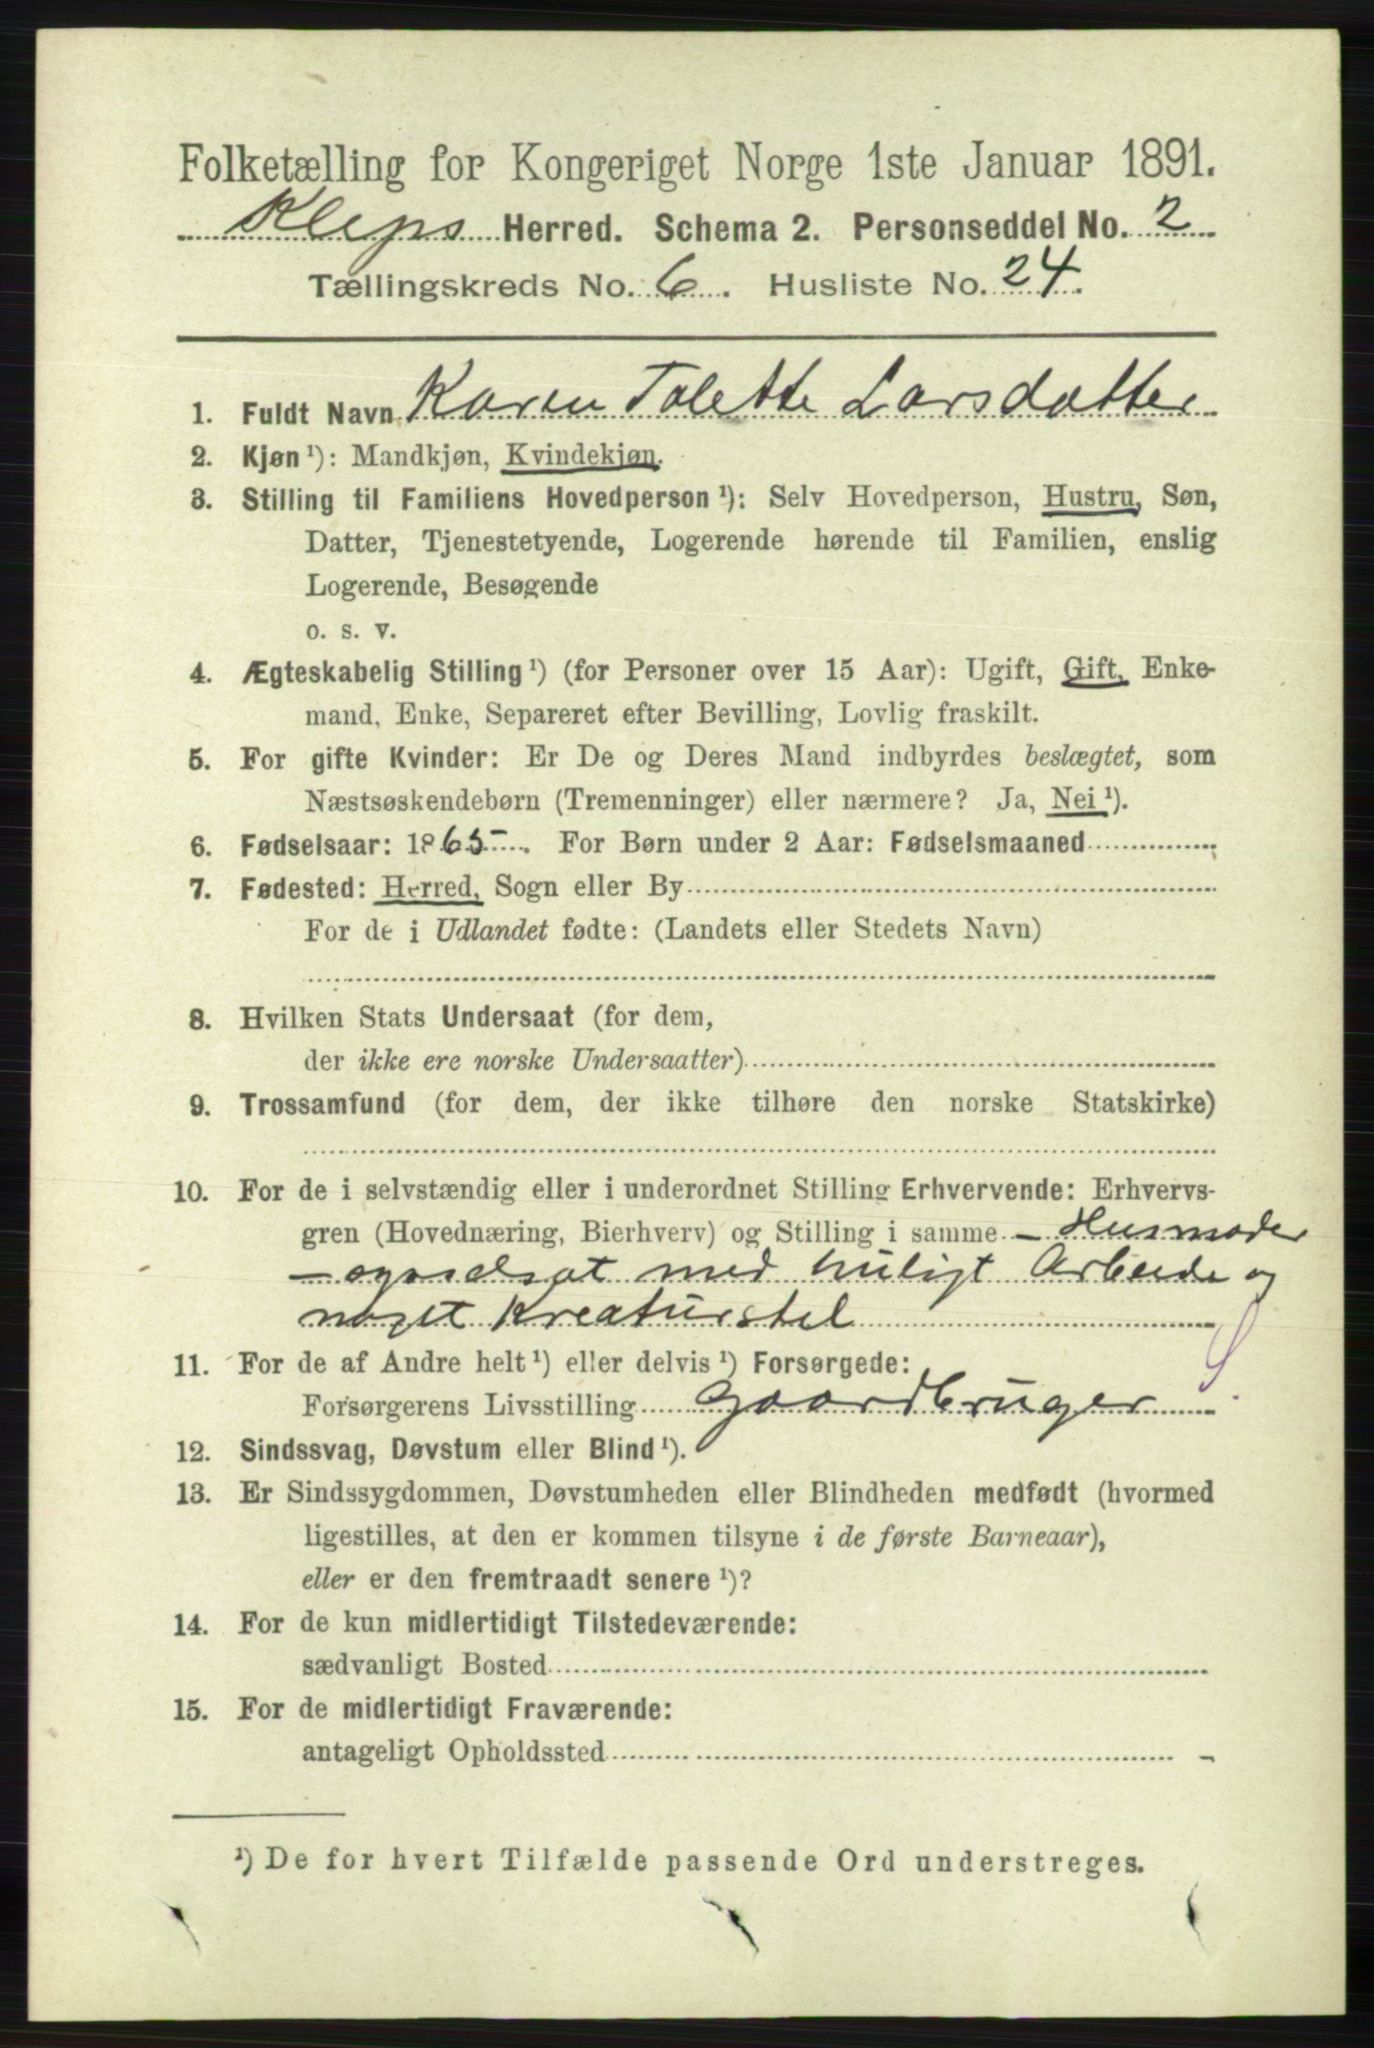 Folketælling for Kongeriget Norge 1ste Januar 1891.
Kleps Herred. Schema 2. Personseddel No. 2
Tællingskreds No. 6. Husliste No. 24.
1. Fuldt Navn Karen Talette Larsdatter
2. Kjøn ¹): Mandkjøn, Kvindekjøn.
3. Stilling til Familiens Hovedperson ¹): Selv Hovedperson, Hustru, Søn,
Datter, Tjenestetyende, Logerende hørende til Familien, enslig
Logerende, Besøgende
o. s. v.
4. Ægteskabelig Stilling ¹) (for Personer over 15 Aar): Ugift, Gift, Enke-
mand, Enke, Separeret efter Bevilling, Lovlig fraskilt.
5. For gifte Kvinder: Er De og Deres Mand indbyrdes beslægtet, som
Næstsøskendebørn (Tremenninger) eller nærmere? Ja, Nei ¹).
6. Fødselsaar: 1865. For Børn under 2 Aar: Fødselsmaaned
7. Fødested: Herred, Sogn eller By
For de i Udlandet fødte: (Landets eller Stedets Navn)
8. Hvilken Stats Undersaat (for dem,
der ikke ere norske Undersaatter)
9. Trossamfund (for dem, der ikke tilhøre den norske Statskirke)
10. For de i selvstændig eller i underordnet Stilling Erhvervende: Erhvervs-
gren (Hovednæring, Bierhverv) og Stilling i samme – Husmoder
– sysselsat med huligt Arbeide og
noget Kreaturstel
11. For de af Andre helt ¹) eller delvis ¹) Forsørgede:
Forsørgerens Livsstilling Gaardbruger
12. Sindssvag, Døvstum eller Blind ¹).
13. Er Sindssygdommen, Døvstumheden eller Blindheden medfødt (hvormed
ligestilles, at den er kommen tilsyne i de første Barneaar),
eller er den fremtraadt senere ¹)?
14. For de kun midlertidigt Tilstedeværende:
sædvanligt Bosted
15. For de midlertidigt Fraværende:
antageligt Opholdssted
¹) De for hvert Tilfælde passende Ord understreges.